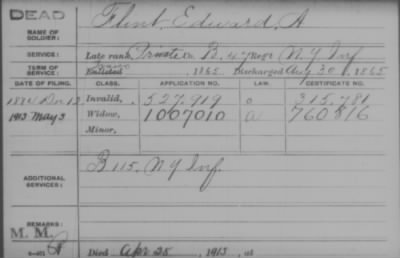 DEAD
NAME OF SOLDIER: Flint, Edward, A
SERVICE: Late rank, Private Co. B, 47 Reg't N.Y. Inf.
TERM OF SERVICE: Enlisted , 1865. Discharged Aug 30, 1865
DATE OF FILING. CLASS. APPLICATION NO. LAW. CERTIFICATE NO.
1884 Dec 12 Invalid, 527.919 315.781
1913 May 3 Widow, 1007010 a 760516
Minor,
ADDITIONAL SERVICES: B 115, N.Y. Inf.
REMARKS:
M. M.
Died Apr 25, 1913, at